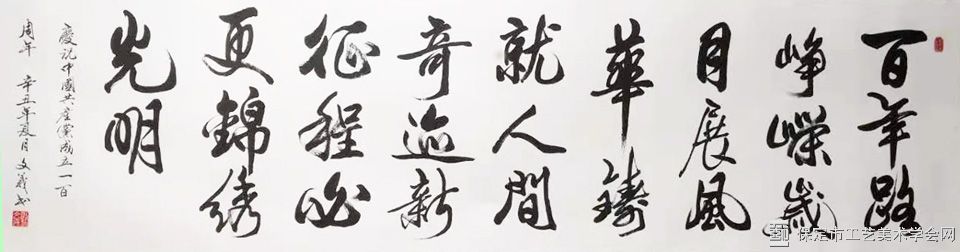 百年路
峥嵘歲
月展風
華鑄
就人間
奇迹新
征程必
更錦绣
光明
慶祝中國共產黨成立一百
周年 辛丑年夏月文義书
保定市工艺美术学会网